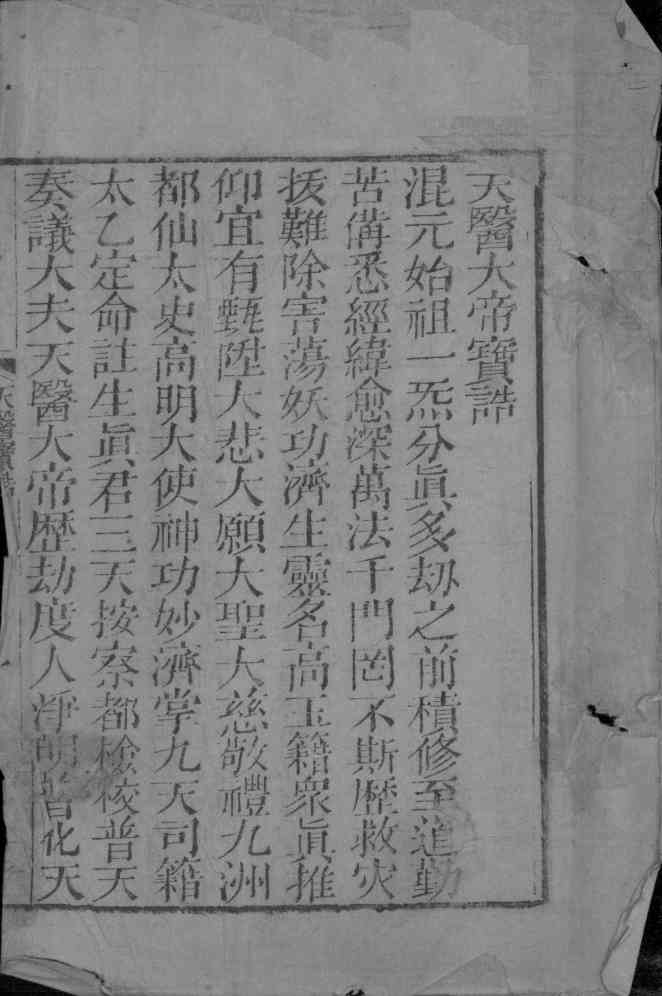 天醫大帝寶誥
混元始祖一炁分眞多刼之前積修至道勤
苦偹悉經緯愈深萬法千門罔不斯歷救灾
拔難除害蕩妖功濟生靈名高玉籍衆眞推
仰宜有甄陞大悲大願大聖大慈敬禮九洲
都仙太史高明大使神功妙濟掌九天司籍
太乙定命註生眞君三天按察都檢校普天
奏議大夫天醫大帝歷劫度人淨明普化天
天醫寶誥